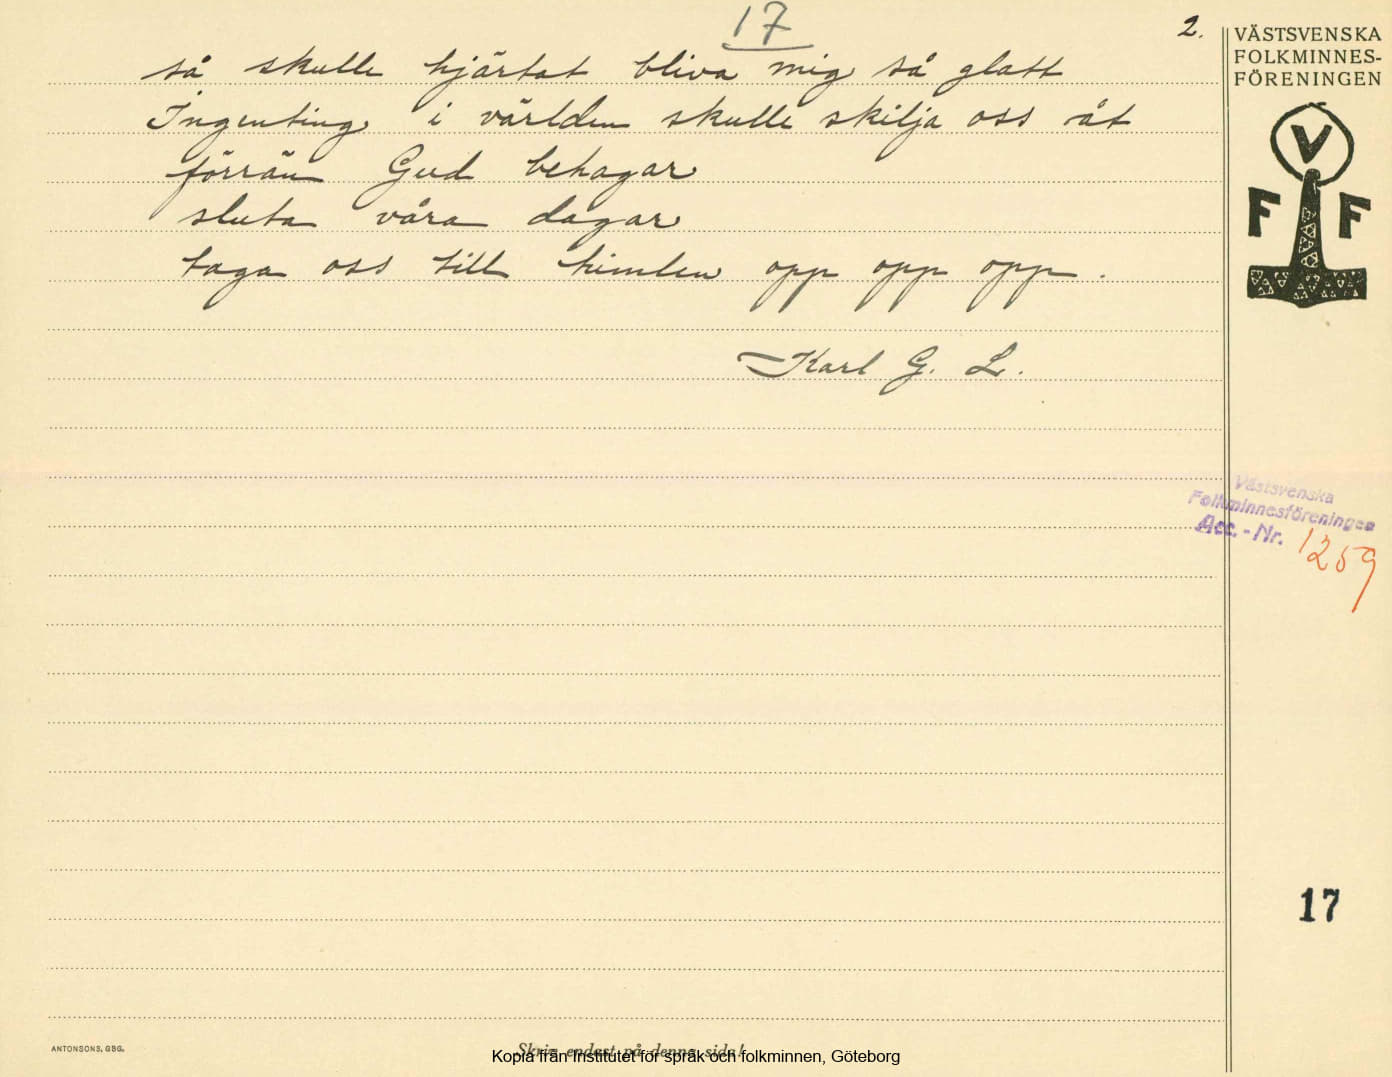 17
2.
så skulle hjärtat bliva mig så glatt
Ingenting i världen skulle skilja oss åt
förrän Gud behagar
sluta våra dagar
taga oss till himlen opp opp opp.
Karl G. L.
VÄSTSVENSKA
FOLKMINNES-
FÖRENINGEN
V
F F
Västsvenska
Folkminnesföreningen
Acc.-Nr. 1259
17
ANTONSONS, GBG.
Skriv endast på denna sida!
Kopia från Institutet för språk och folkminnen, Göteborg